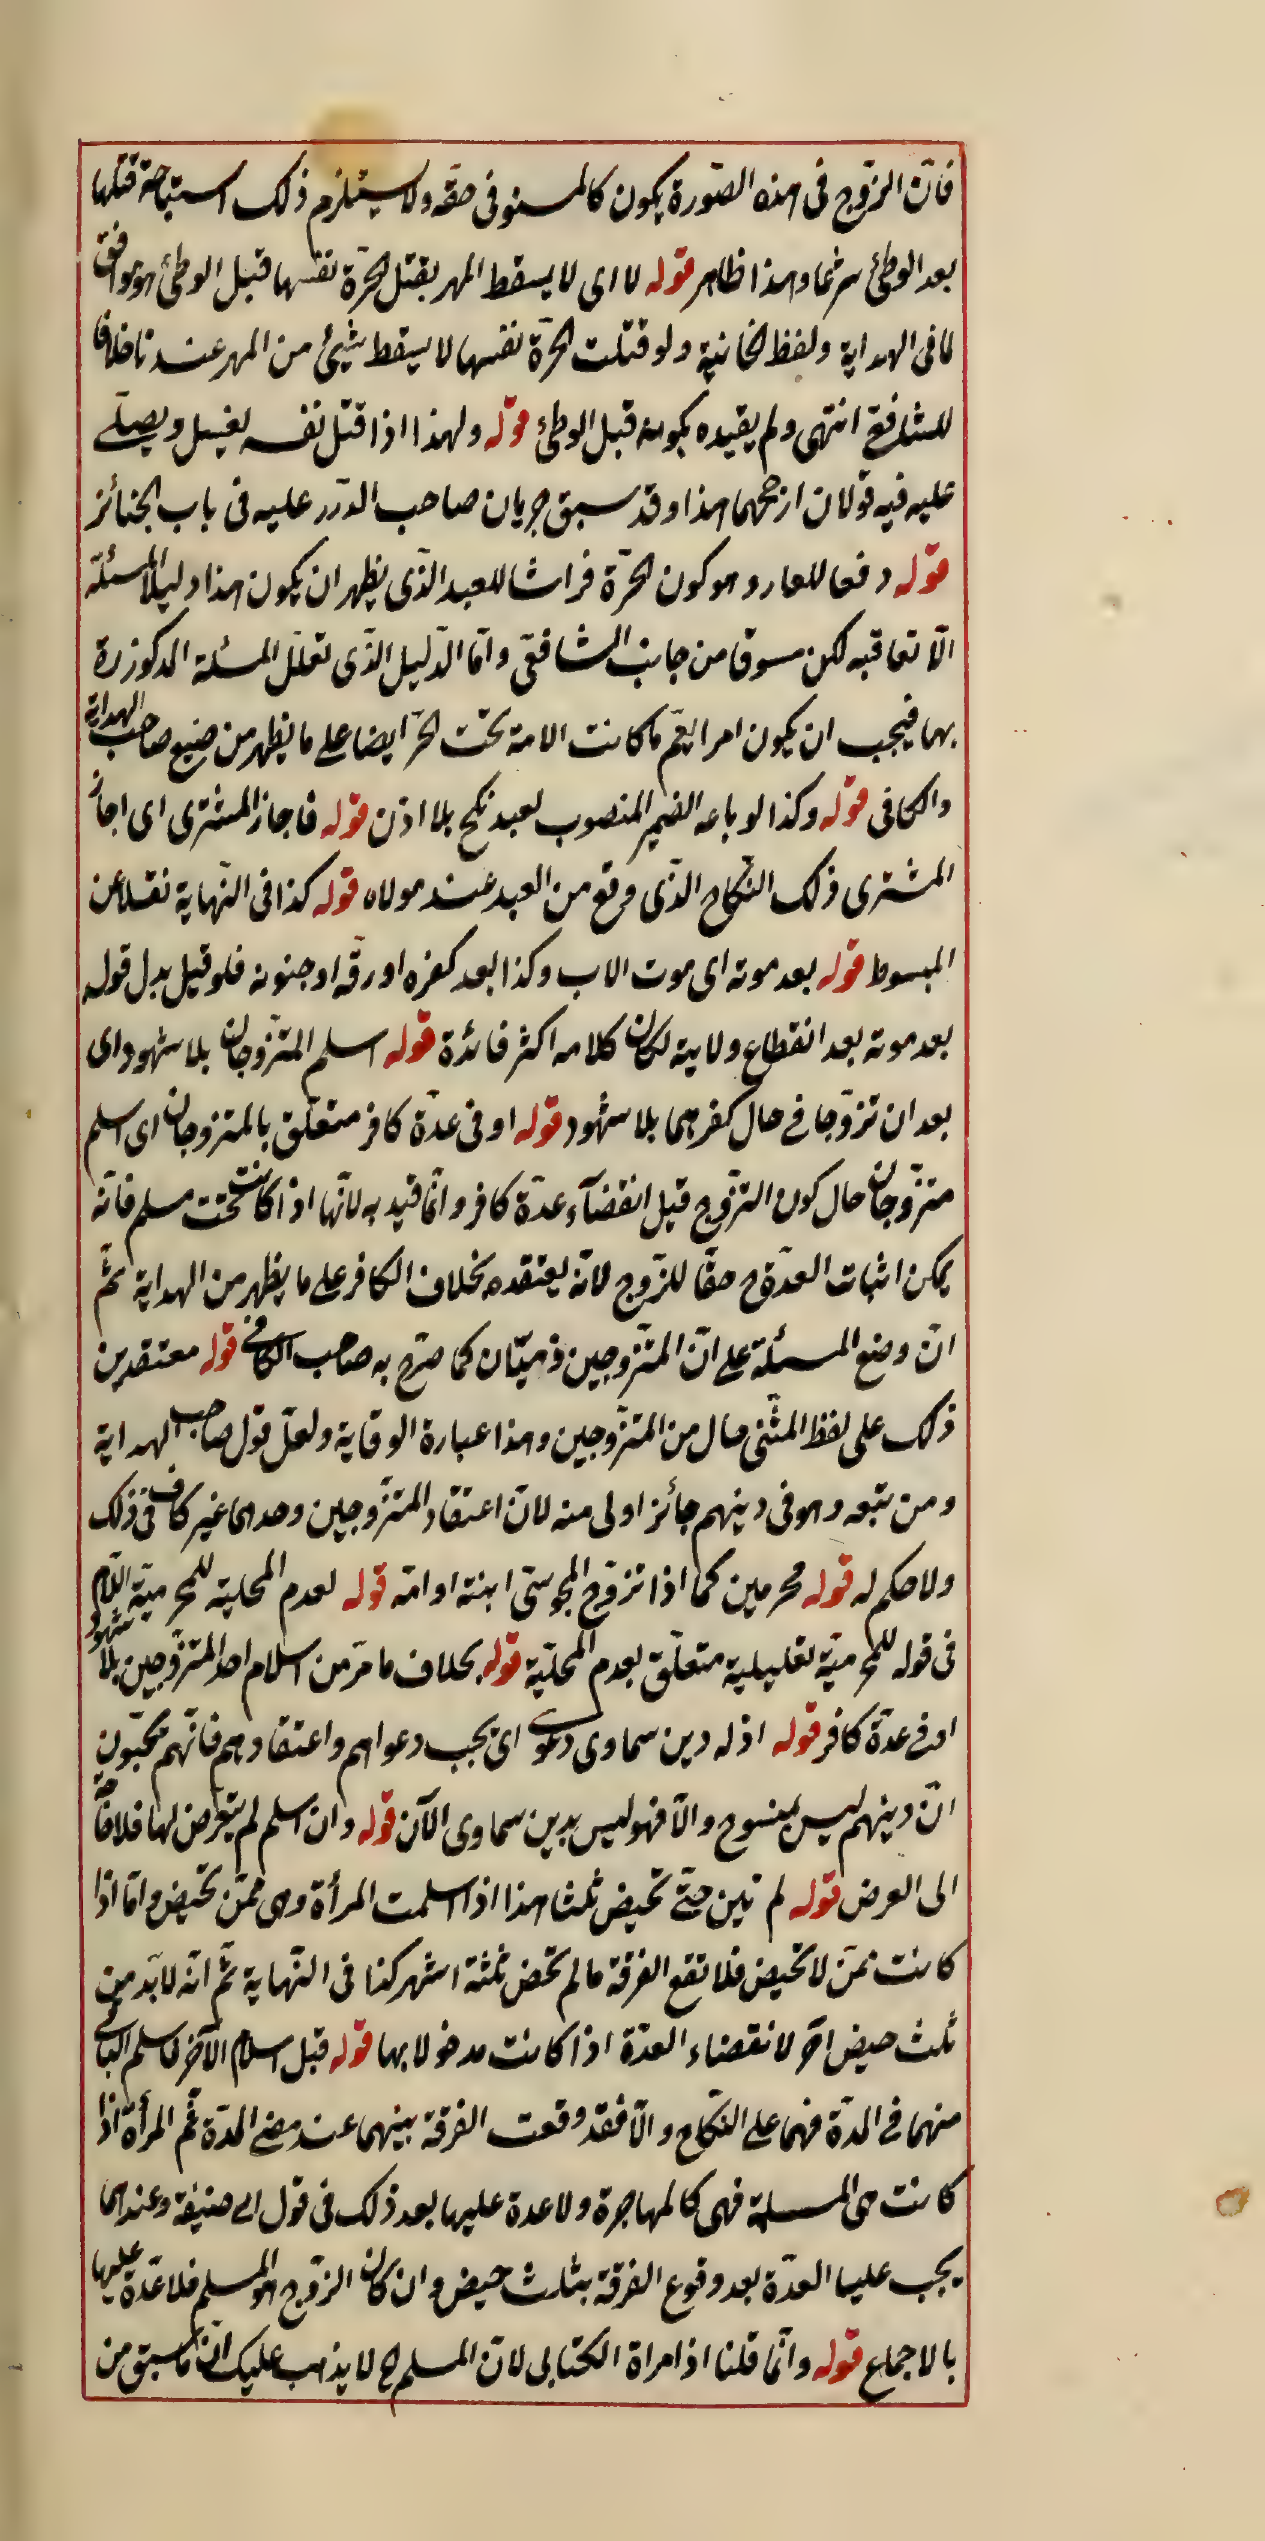 فانّ الزوج فى هذه الصّورة يكون كالمستوفى حقّه ولا يستلزم ذلك استباحة قتلها
بعد الوطئ شرعا وهذا ظاهر قوله لا اى لا يسقط المهر بقتل الحرّة نفسها قبل الوطئ هو موافق
لما فى الهداية ولفظ الخانية ولو قتلت الحرّة نفسها لا يسقط شيئ من المهر عندنا خلافا
للشافعى انتهى ولم يقيده بكونه قبل الوطئ قوله ولهذا اذا قتل نفسه يغسل ويصلّى
عليه فيه قولان ارجحهما هذا وقد سبق جريان صاحب الدّرر عليه فى باب الجنائز
قوله دفعا للعار وهو كون الحرّة فراشا للعبد الذّى يظهر ان يكون هذا دليلا لمسئلة
الّا تعاقبه لكن مسوقا من جانب الشافعىّ وامّا الدّليل الذّى تعلّل المسئلة المذكورة
بها فيجب ان يكون امرا يعمّ ما كانت الامة تحت الحرّ ايضا على ما يظهر من صنيع صاحب الهداية
والكافى قوله وكذا لو باعه الضمير المنصوب لعبد نكح بلا اذن قوله فاجاز المشترى اى اجاز
المشترى ذلك النّكاح الذّى وقع من العبد عند مولاه قوله كذا فى النّهاية نقلا عن
المبسوط قوله بعد موته اى موت الاب وكذا بعد كفره او رقّه او جنونه فلو قيل بدل قوله
بعد موته بعد انقطاع ولايته لكان كلامه اكثر فائدة قوله اسلم المتزوّجان بلا شهود اى
بعد ان تزوّجا فى حال كفرهما بلا شهود قوله او فى عدّة كافر متعلّق بالمتزوجان اى اسلم
متزوّجان حال كون التزّوج قبل انقضآء عدّة كافر وانّما قيد به لانّها اذا كانت تحت مسلم فانّه
يمكن اثبات العدّة ح حقّا للزّوج لانّه يعتقده بخلاف الكافر على ما يظهر من الهداية ثمّ
انّ وضع المسئلة على انّ المتزّوجين ذميّان كما صرّح به صاحب الكافى قوله معتقدين
ذلك على لفظ المثنّى حال من المتزّوجين وهذا عبارة الوقاية ولعلّ قول صاحب الهداية
ومن تبعه وهو فى دينهم جائز اولى منه لانّ اعتقاد المتزّوجين وحدهما غير كاف فى ذلك
ولا حكم له قوله محرمين كما اذا تزوّج المجوسىّ ابنته او امّه قوله لعدم المحلية للمحرميّة اللّام
فى قوله للمحرميّة تعليلية متعلّق بعدم المحلّية قوله بخلاف ما مرّ من اسلام احد المتزوّجين بلا شهود
او فى عدّة كافر قوله اذ له دين سماوى دعوى اى بحب دعواهم واعتقادهم فانّهم
انّ دينهم ليس بمنسوخ والّا فهو ليس بدين سماوى الآن قوله وان اسلم لم يتعرض لها فلا حاجة
الى العرض قوله لم تبن حتّى تحيض ثلثا هذا اذا اسلمت المرأة وهى ممّن تحيض وامّا اذا
كانت ممّن لا تحيض فلا تقع الفرقة ما لم تمض ثلثة اشهر كذا فى النّهاية ثمّ انّه لا بدّ من
ثلث حيض اخر لانقضاء العدّة اذا كانت مدخولا بها قوله قبل اسلام الآخر فان اسلم الباقى
منهما فى المدّة فهما على النّكاح والّا فقد وقعت الفرقة بينهما عند مضى المدّة ثمّ المرأة اذا
كانت هى المسلمة فهى كالمهاجرة ولا عدة عليها بعد ذلك فى قول ابى حنيفة وعندهما
يجب عليها العدّة بعد وقوع الفرقة بثلث حيض وان كان الزّوج هو المسلم فلا عدّة عليها
بالاجماع قوله وانّما قلنا اذ امراة الكتابى لانّ المسلم الخ لا يذهب عليك انّ ما سبق من